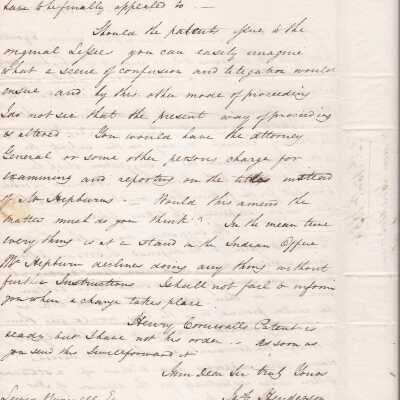 have to be finally appealed to —
Should the patents issue to the
original Lessee you can easily imagine
what a scene of confusion and litigation would
ensue and by this other mode of proceeding
I do not see that the present way of proceeding
is altered You would have the attorney
General or some other persons charge for
examining and reporting on the titles instead
of Mr Hepburns — Would this amend the
matter much do you think? In the mean time
every thing is at a stand in the Indian Office
Mr Hepburn declines doing any thing without
further Instructions. I shall not fail to inform
you when a change takes place.
Henry Patent is
ready but I have not his order — as soon as
you send this I will forward it
I am Dear Sir truly Yours
Jas Henderson